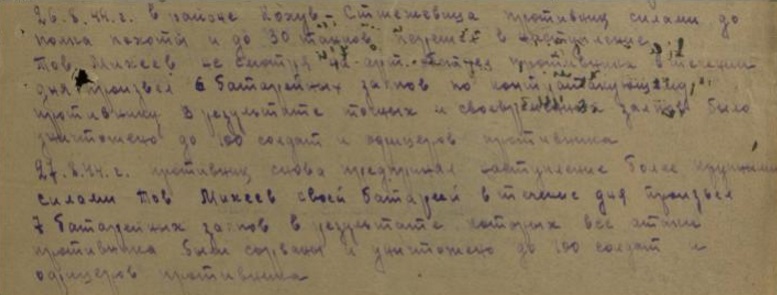 26.8.44.г. в районе Кохув - Стшежевица противник силами до
полка пехоты и до 30 танков перешел в наступление
Тов Михеев не смотря на арт. противника в течении
дня произвел 6 батарейных залпов по контратакующему
противнику В результате точных и своевременных залпов было
уничтожено до 100 солдат и офицеров противника
27.8.44.г. противник снова предпринял наступление более крупными
силами Тов Михеев своей батареей в течение дня произвел
7 батарейных залпов в результате которых все атаки
противника были сорваны и уничтожено до 100 солдат и
офицеров противника